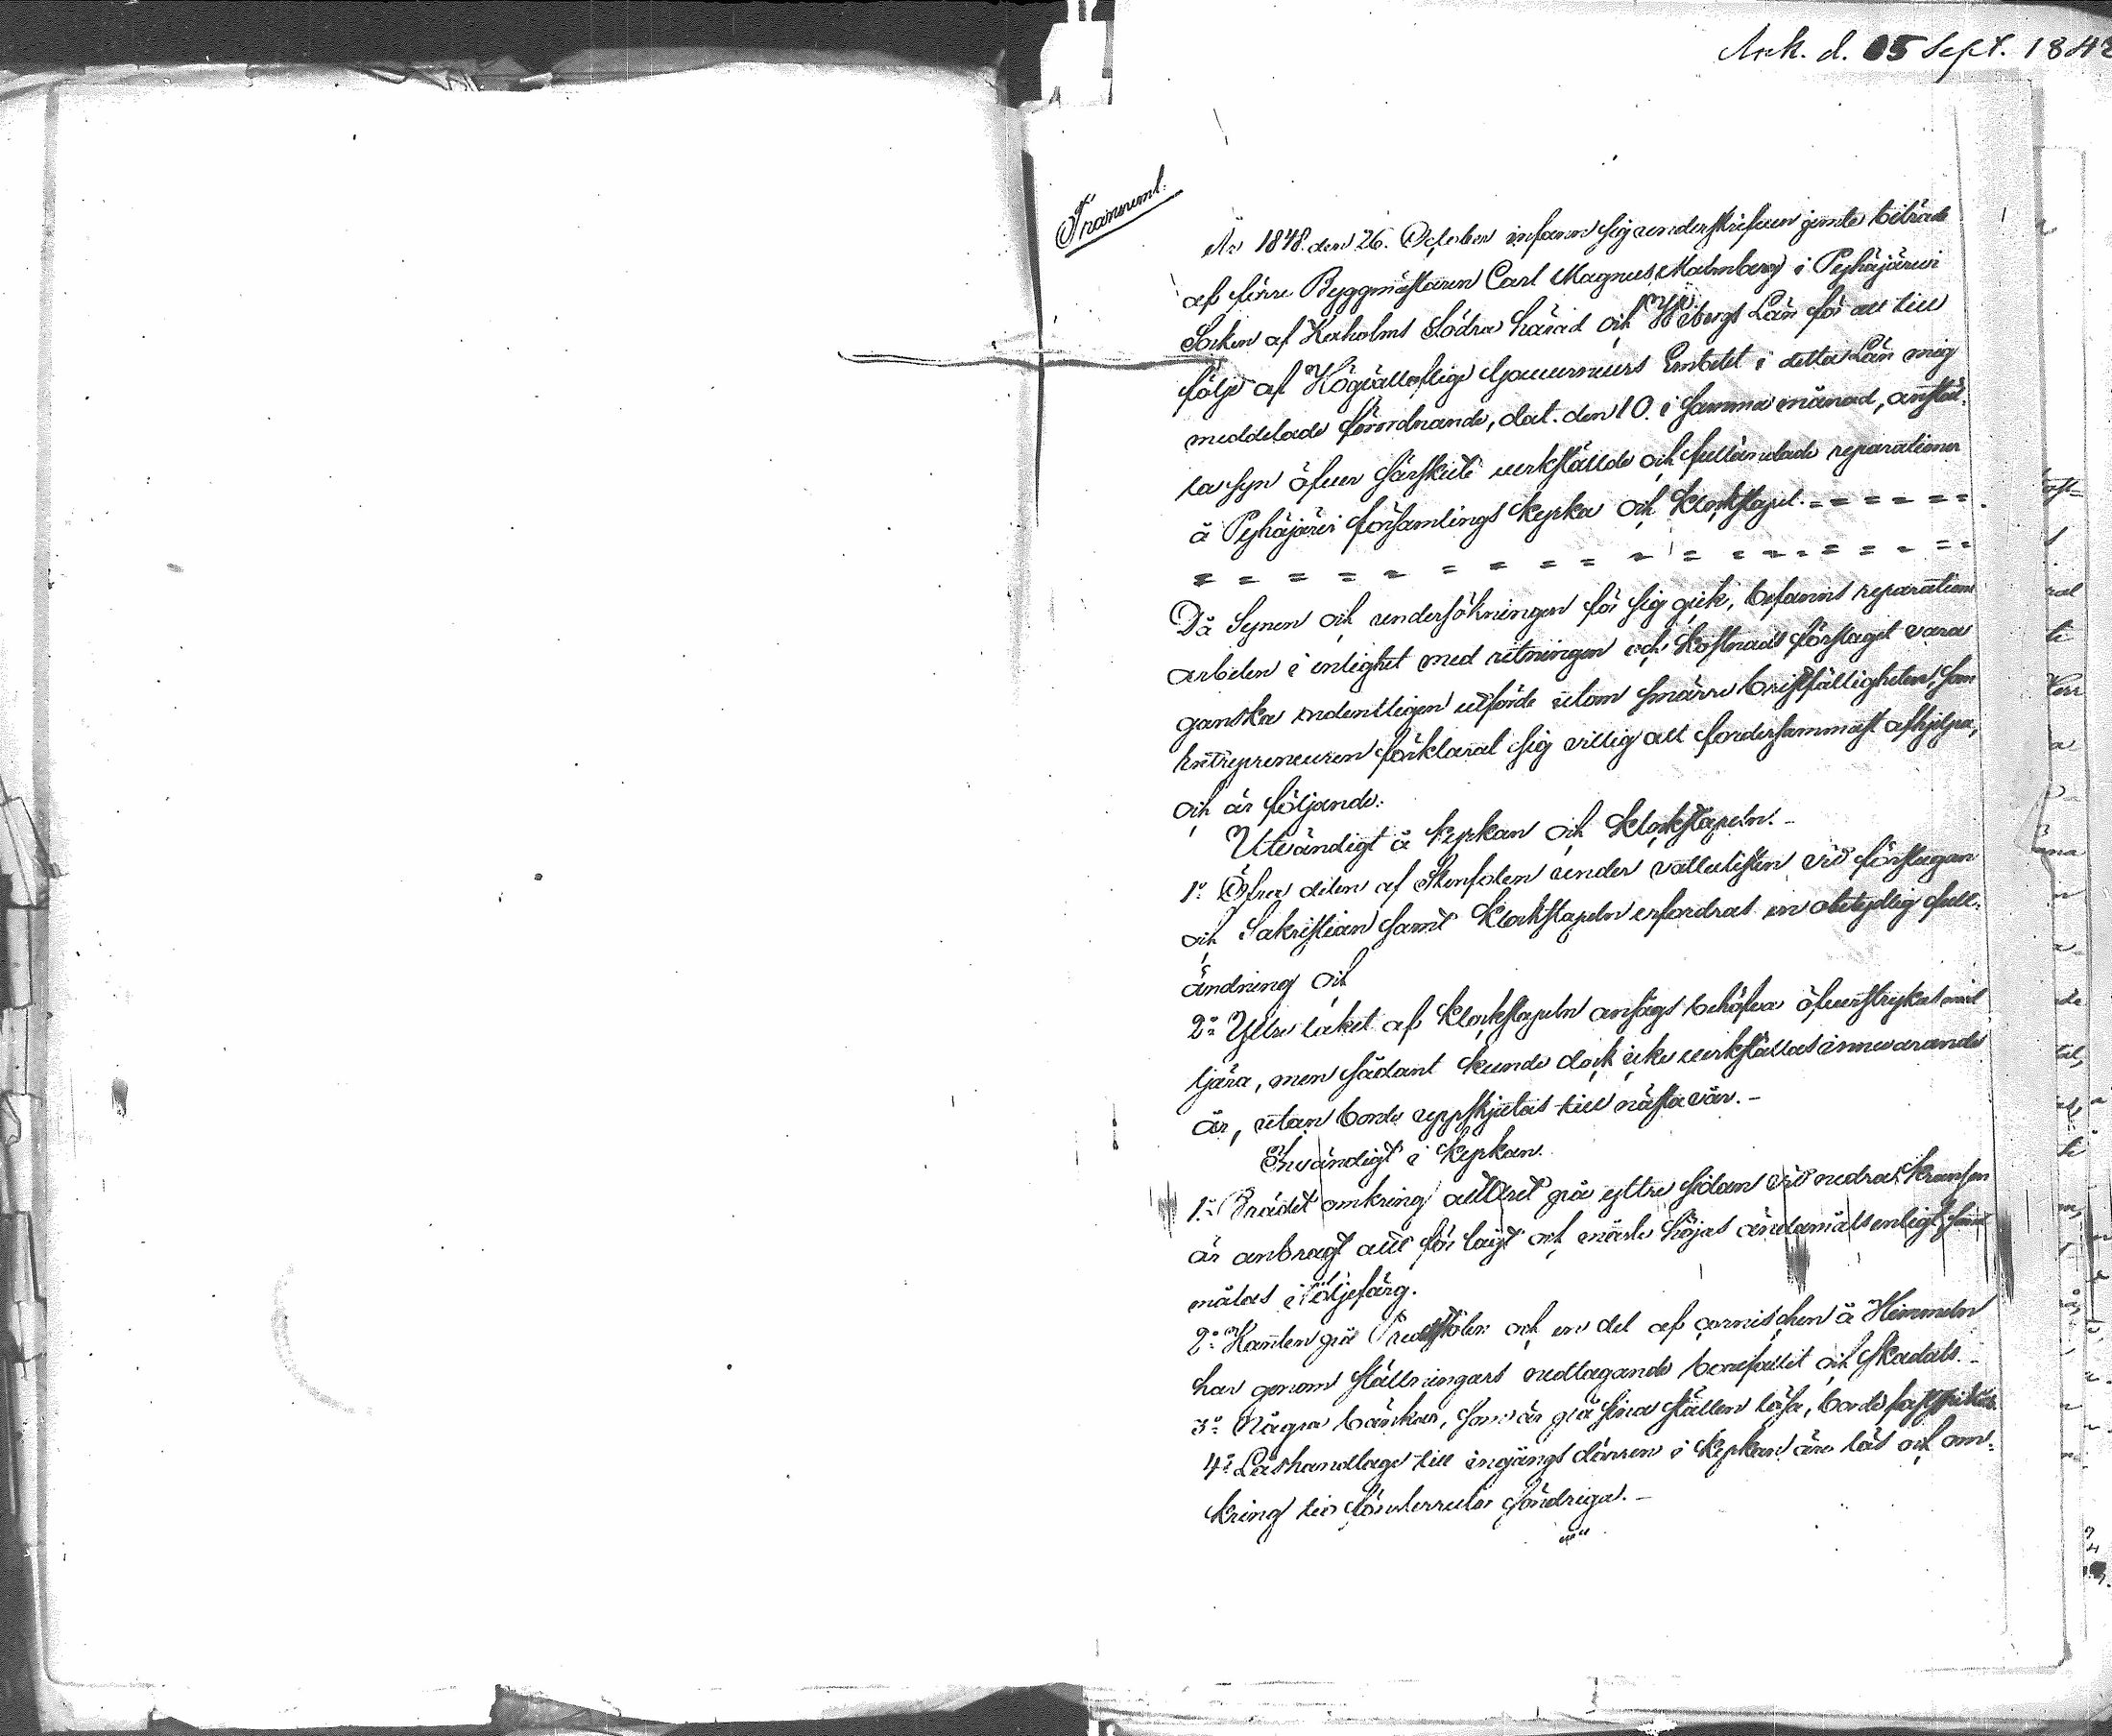 Ank. d. 05 Sept. 1842
Transsumt.
År 1848 den 26. October infann sig undertskrifwen jemte biträde
af förre Byggmästaren Carl Magnus Malmberg i Pyhäjärwi
Socken af Kexholms Södra härad och Wiborgs Län för att till
följe af Högwällofliga Gouverneurs Embetet i detta Län mig
meddelade förordnande, dat. den 10. i samma månad, anstäl-
la syn öfwer särskilte werkställde och fulländade reparationer
å Pyhäjärwi församlings kyrka och klockstapel. = = = = = = =
= = = = = = = = = = = = = = = = =
Då Synen och undersökningen för sig gick, befanns reparations
arbeten i enlighet med ritningen och kostnads förslaget vara
ganska ordentligen utförde utom smärre bristfälligheter, som
Entrepreneuren förklarat sig villig att fordersammast afhjelpa,
och är följande:
Utvändigt å kyrkan och klockstapeln. -
1:o Öfra delen af Stenfoten under vattulisten vid förstugan
och Sakristian samt klockstapeln erfordrat en obetydlig full-
ändning och
2:o Yttre taket af klockstapeln ansågs behöfwa öfwerstrykas med
tjära, men sådant kunde dock icke werkställas innewarande
år, utan borde uppskjutas till nästa vår. -
Inwändigt i kyrkan.
1:o Brädet omkring altaret på yttre sidan vid nedra kransen
är anbragt allt för lågt och måste höjas ändamålsenligt, samt
målas i oljefärg.
2:o Kanten på Predikstolen och en del af cornischen å Himmeln
har genom ställningars nedtagande bortfallit och skadats. -
3:o Några bänkar, som är på sina ställen lösa, borde fastspikas.
4:o Låshandtage till ingångs dörren i kyrkan är lös och om-
kring tio fönsterrutor söndriga. -